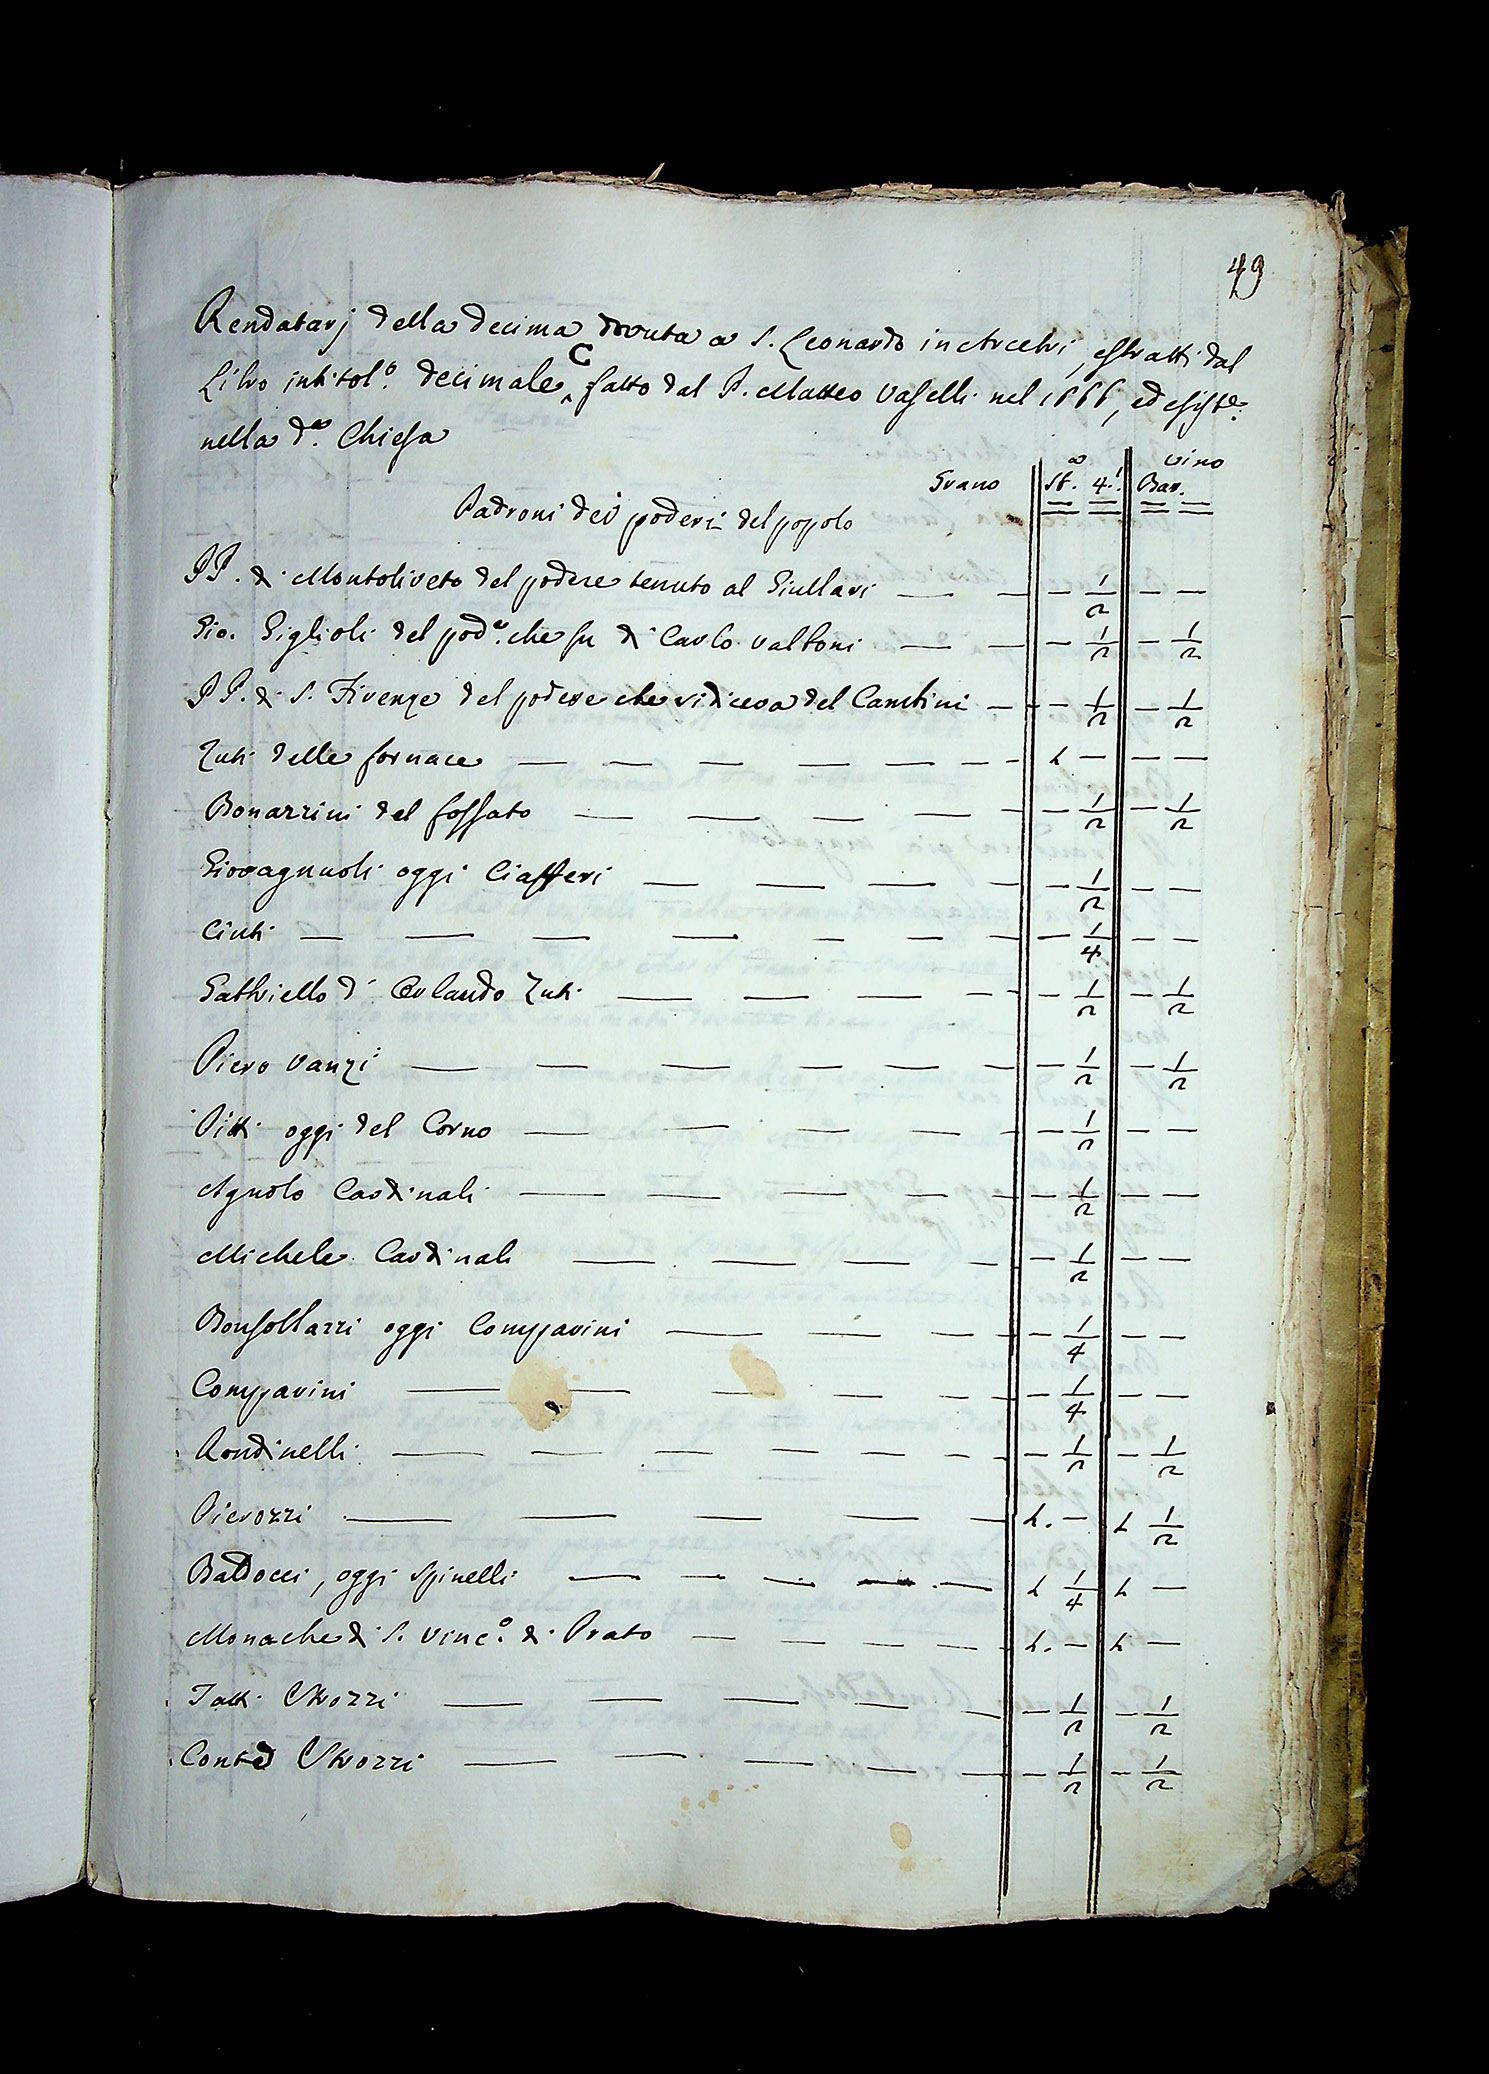 49
Rendatarj della decima dovuta a S. Leonardo in Arcetri, estratti dal
Libro intitol.o decimale C fatto dal P. Matteo Vaselli nel 1666, ed esist.e
nella d.a Chiesa
Grano St.a 4.i vino Bar.
Padroni dei poderi del popolo
PP. di Montoliveto del podere tenuto al Giullari — — — 1/2 — —
Gio. Giglioli del pod.e che fu di Carlo — — — 1/2 — 1/2
PP. di S. Firenze del podere che si diceva del — — — 1/2 — 1/2
Zuti delle fornace — — — — — — — 1 — — —
Bonazzini del fossato — — — — — — 1/2 — 1/2
Giovagnuoli oggi Ciafferi — — — — — 1/2 — —
Ciuti — — — — — — — — 1/4 — —
Gabriello d' Orlando Zuti — — — — — — 1/2 — 1/2
Piero Vanzi — — — — — — — 1/2 — 1/2
Pitti oggi del Corno — — — — — — 1/2 — —
Agnolo Cardinali — — — — — — 1/2 — —
Michele Cardinali — — — — — 1/2 — —
Bonsollazzi oggi Comparini — — — — — 1/4 — —
Comparini — — — — — — 1/4 — —
Rondinelli — — — — — — — — 1/2 — 1/2
Pierozzi — — — — — 1. — 1 1/2
Baldocci, oggi Spinelli — — — — — 1 1/4 1 —
Monache di S. Vinc.o di Prato — — — — — 1. — 1 —
Strozzi — — — — — — 1/2 — 1/2
Strozzi — — — — — — 1/2 — 1/2